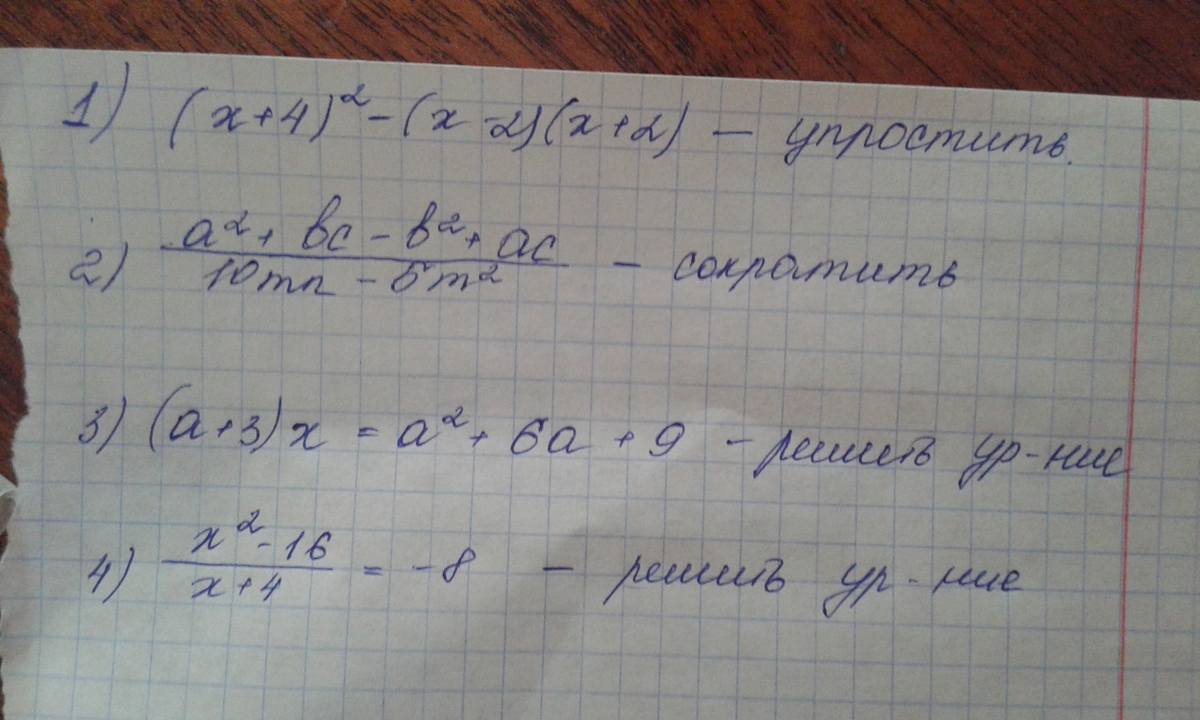 1) (x+4)² - (x-2)(x+2) — упростить.
2) a² + bc - b² + ac / 10mn - 5m² - сократить
3) (a+3)x = a² + 6a + 9 - решить ур-ние
4) x² - 16 / x+4 = -8 - решить ур-ние